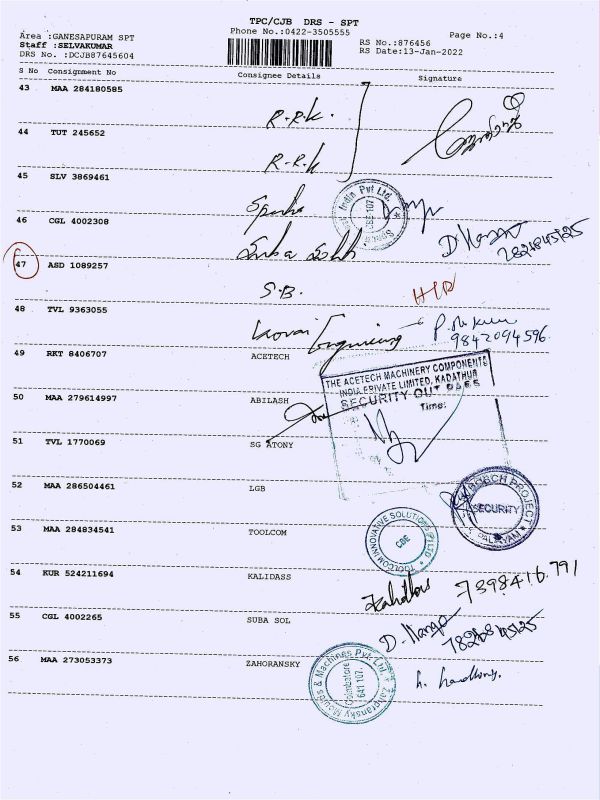 TPC/CJB DRS - SPT
Area :GANESAPURAM SPT
Phone No.:0422-3505555
Page No.:4
Staff :SELVAKUMAR
RS No.:876456
DRS No. :DCJB87645604
RS Date:13-Jan-2022
S No Consignment No Consignee Details Signature
43 MAA 284180585 R.R.K.
44 TUT 245652 R-R.K
45 SLV 3869461
India Pvt Ltd.
46 CGL 4002308 Suba
47 ASD 1089257 S.B.
48 TVL 9363055 Kovai Engineering
9842094596
49 RKT 8406707 ACETECH
THE ACETECH MACHINERY COMPONENTS
INDIA PRIVATE LIMITED, KADATHUR
SECURITY OUT PASS
Time:
50 MAA 279614997 ABILASH
51 TVL 1770069 SG ATONY
52 MAA 286504461 LGB
BOSCH PROJECT
SECURITY
53 MAA 284834541 TOOLCOM
TOOLCOM INNOVATIVE SOLUTIONS (P) LTD
CBE
54 KUR 524211694 KALIDASS
7398416791
55 CGL 4002265 SUBA SOL
56 MAA 273053373 ZAHORANSKY
Zahoransky Moulds & Machines Pvt. Ltd.
Coimbatore
641 107.